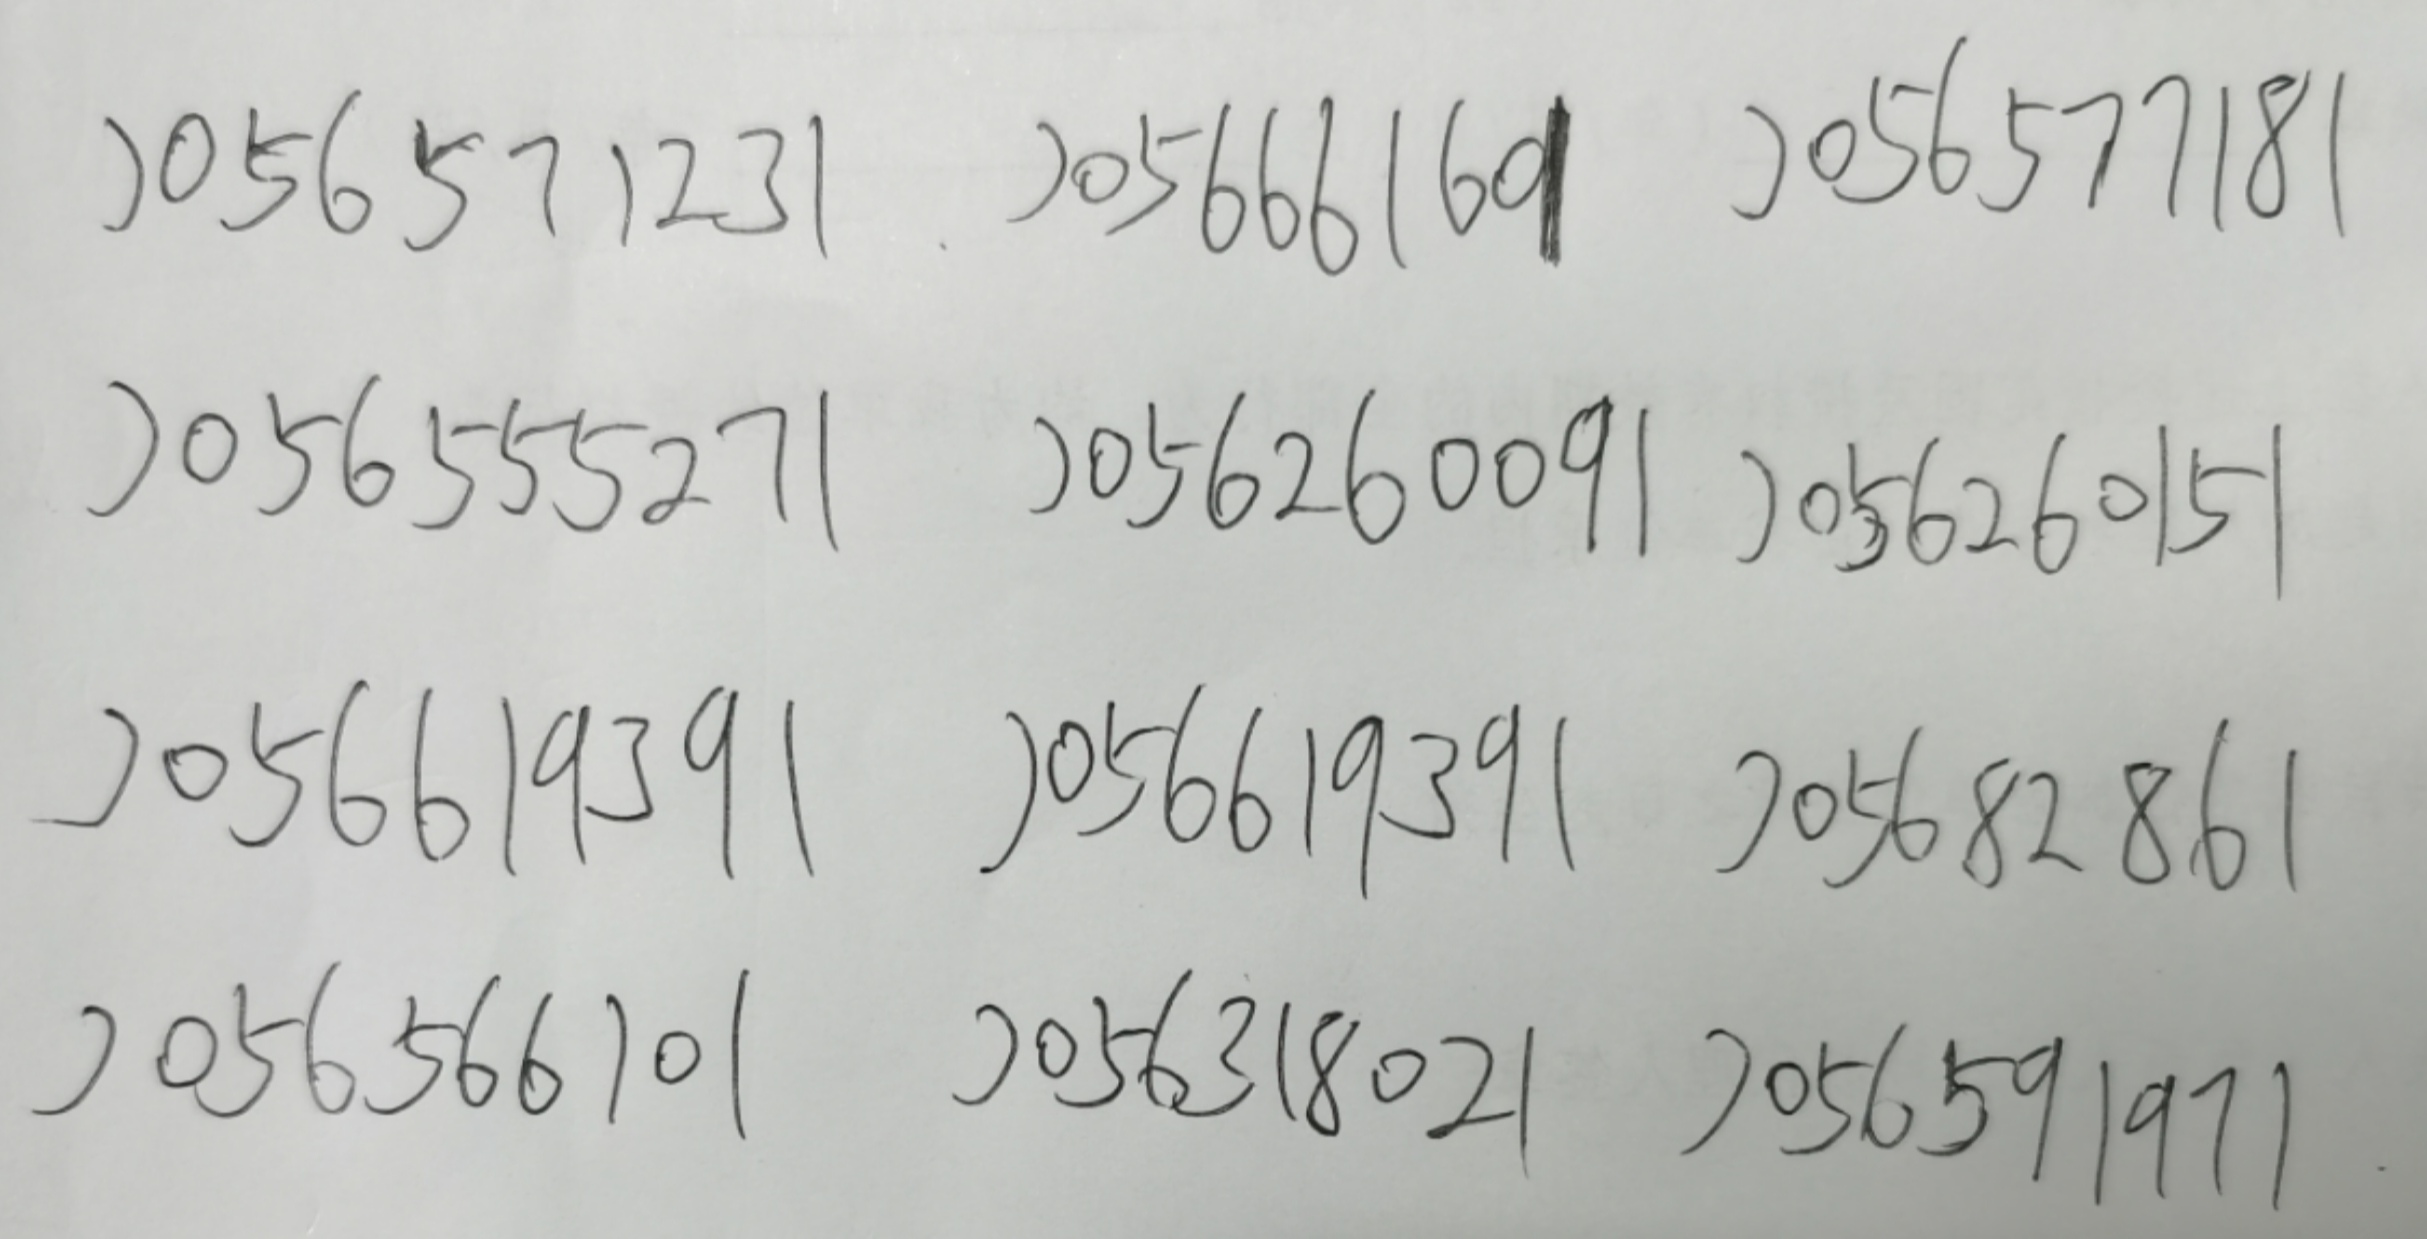 J056571231 J056661601 J056577181
J056555271 J056260091 J056260151
J056619391 J056619391 J05682861
J056566101 J056318021 J056591971